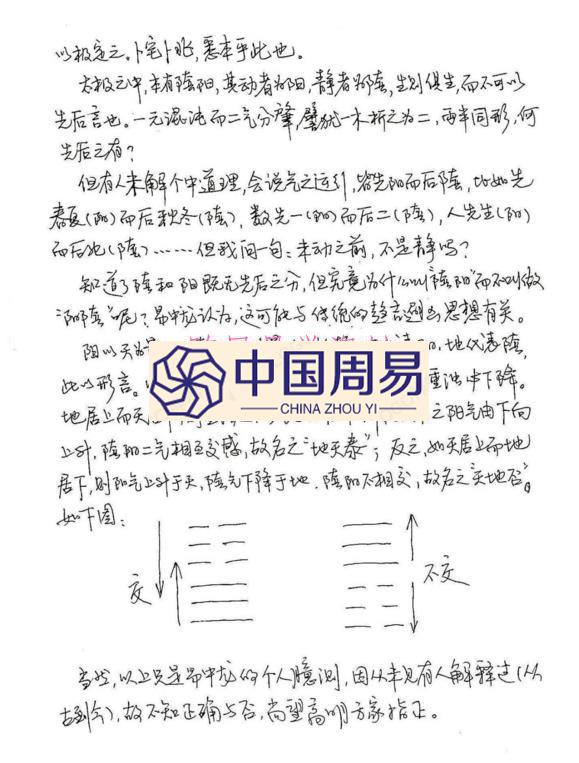 以极定之。卜宅卜兆，悉本乎此也。
太极之中，本有阴阳，其动者为阳，静者为阴，生则俱生，而不可以
先后言也。一元混沌而二气分肇，譬犹一木析之为二，两半同形，何
先后之有？
但有人未解个中道理，会说气之运行，皆先阳而后阴，比如先
春夏(阳)而后秋冬(阴)，数先一(阳)而后二(阴)，人先生(阳)
而后死(阴)……但我问一句：未动之前，不是静吗？
知道了阴和阳既无先后之分，但究竟为什么叫"阴阳"而不叫做
"阳阴"呢？中龙认为，这可能与传统的思想有关。
阳以天为，地代表阴，
此以形言。重浊中下降。
地居上而天之阳气由下向
上升，阴阳二气相互交感，故名之"地天泰"；反之，如天居上而地
居下，则阳气上升于天，阴气下降于地，阴阳不相交，故名之"天地否"。
如下图：
中国周易
CHINA ZHOU YI
交
不交
当然，以上只是中龙的个人臆测，因从未见有人解释过(从
古到今)，故不知正确与否，尚望高明方家指正。